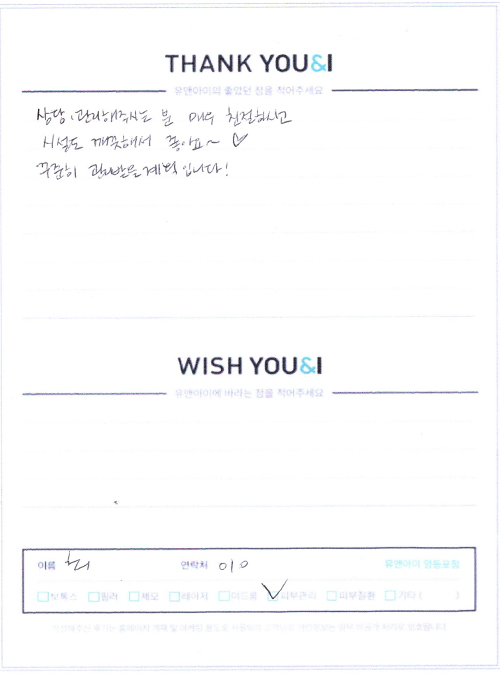 THANK YOU&I
유앤아이의 좋았던 점을 적어주세요
상담, 관리해주시는 분 매우 친절하시고
시설도 깨끗해서 좋아요~ ♡
꾸준히 관리받을 계획입니다!
WISH YOU&I
유앤아이에 바라는 점을 적어주세요
이름 연락처 010 유앤아이 영등포점
보톡스 필러 제모 레이저 여드름 피부관리 피부질환 기타 ( )